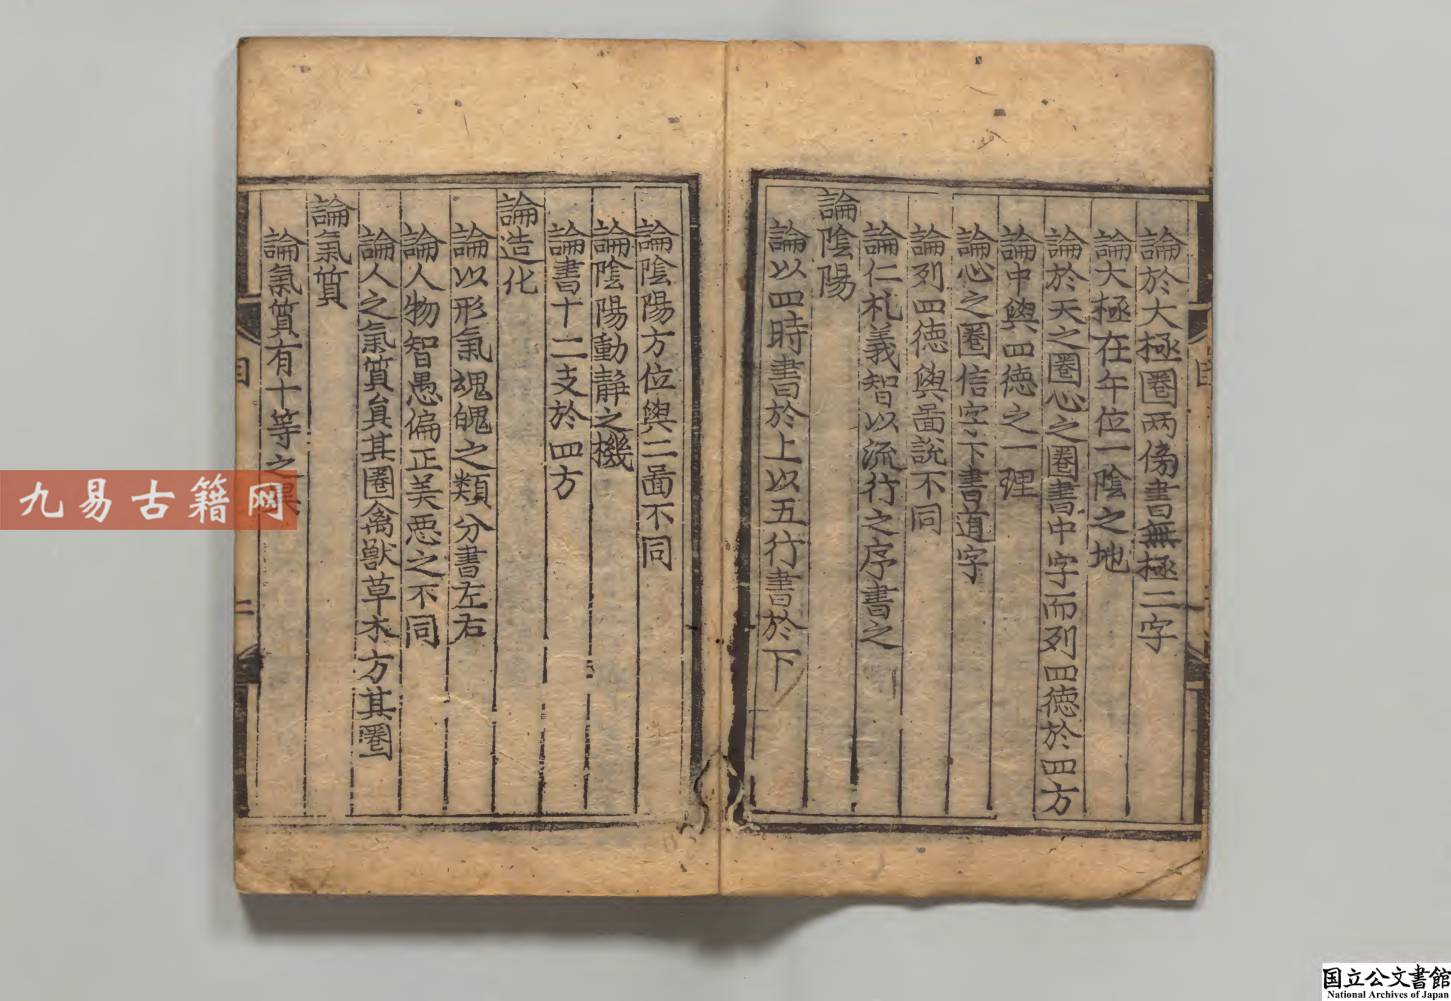 論於大極圏兩傍書無極二字
論大極在午位一陰之地
論於天之圏心之圏書中字而列四德於四方
論中與四德之一理
論心之圏信字下書道字
論列四德與啚說不同
論仁礼義智以流行之序書之
論陰陽
論以四時書於上以五行書於下
論陰陽方位與二啚不同
論陰陽動靜之機
論書十二支於四方
論造化
論以形氣魂魄之類分書左右
論人物智愚偏正美惡之不同
論人之氣質負其圏禽獸草木方其圏
論氣質
論氣質有十等之
目
二
九易古籍网
国立公文書館
National Archives of Japan